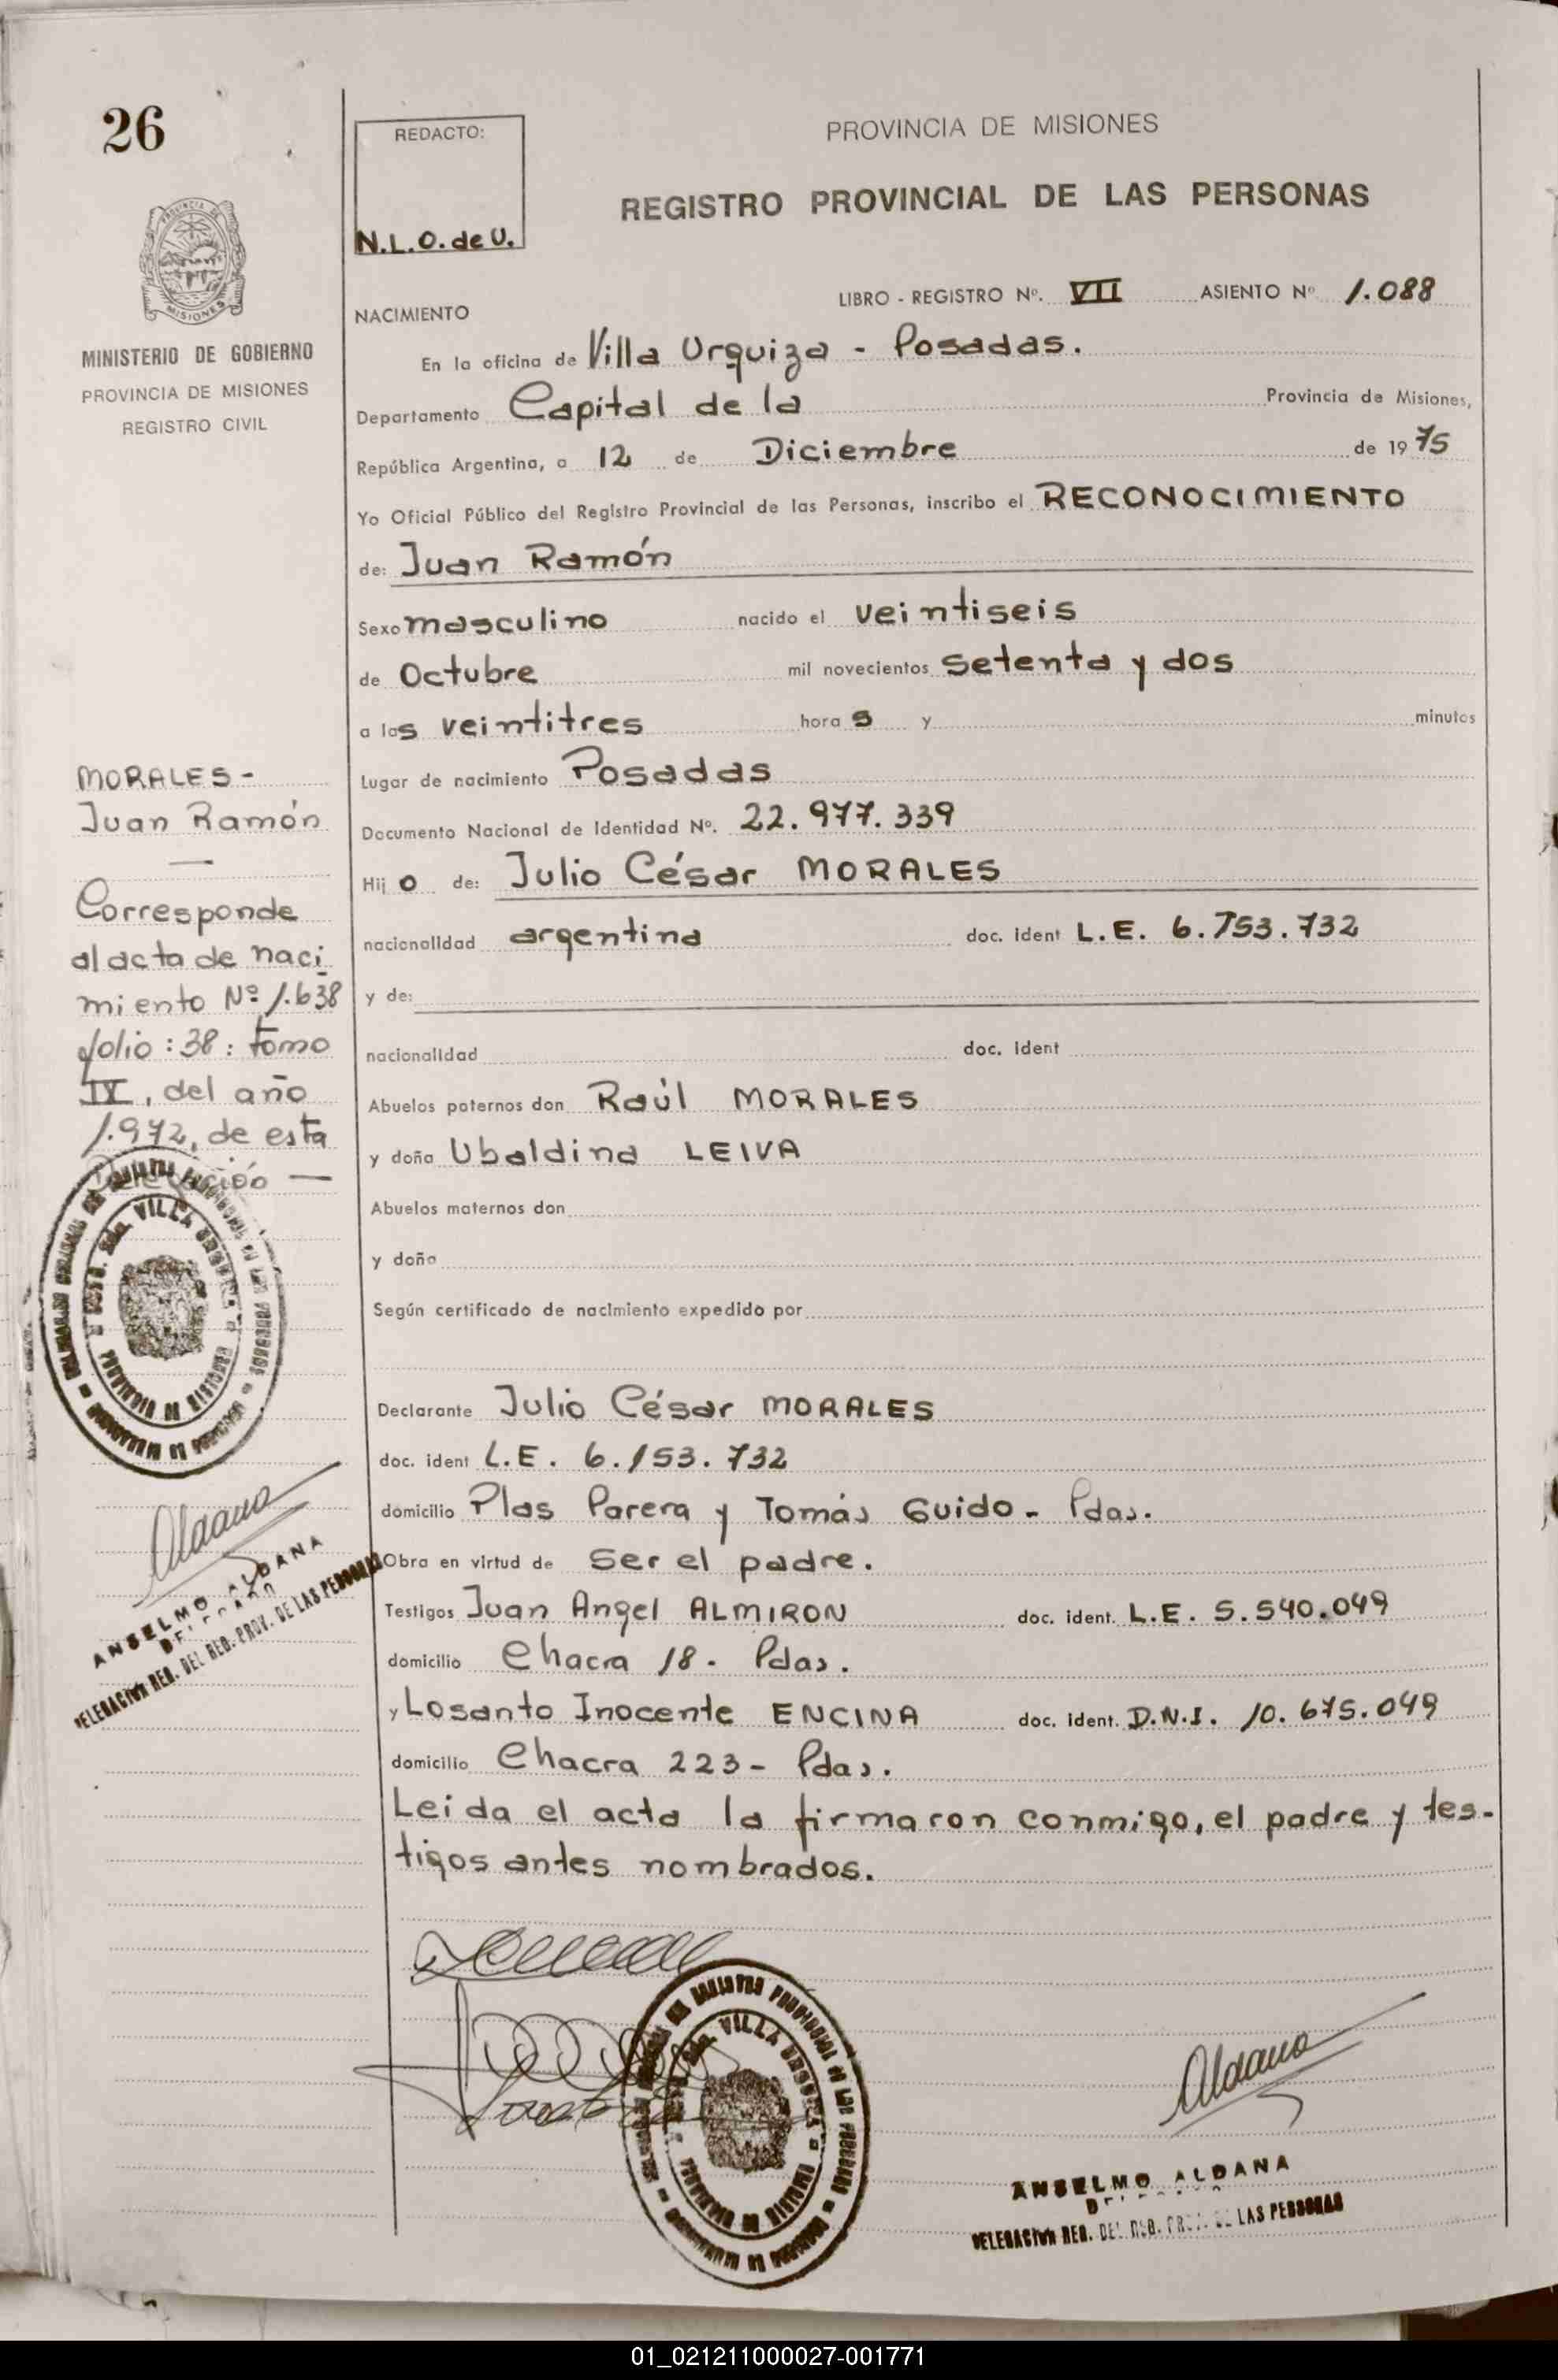 26
REDACTO:
N.L.O. de U.
PROVINCIA DE MISIONES
REGISTRO PROVINCIAL DE LAS PERSONAS
PROVINCIA DE
MISIONES
MINISTERIO DE GOBIERNO
PROVINCIA DE MISIONES
REGISTRO CIVIL
LIBRO - REGISTRO Nº. VII ASIENTO Nº 1.088
NACIMIENTO
En la oficina de Villa Urquiza - Posadas.
Departamento Capital de la Provincia de Misiones,
República Argentina, a 12 de Diciembre de 1975
Yo Oficial Público del Registro Provincial de las Personas, inscribo el RECONOCIMIENTO
de: Juan Ramón
Sexo masculino nacido el veintiseis
de Octubre mil novecientos setenta y dos
a las veintitres hora s y minutos
Lugar de nacimiento Posadas
Documento Nacional de Identidad Nº. 22.977.339
Hij o de: Julio César MORALES
nacionalidad argentina doc. ident L.E. 6.753.732
y de:
nacionalidad doc. ident
Abuelos paternos don Raúl MORALES
y doña Ubaldina LEIVA
Abuelos maternos don
y doña
Según certificado de nacimiento expedido por
Declarante Julio César MORALES
doc. ident L.E. 6.153.732
domicilio Plas Parera y Tomás Guido - Pdas.
Obra en virtud de ser el padre.
Testigos Juan Angel ALMIRON doc. ident. L.E. 5.540.049
domicilio Chacra 18 - Pdas.
y Losanto Inocente ENCINA doc. ident. D.N.I. 10.675.049
domicilio Chacra 223 - Pdas.
Leida el acta la firmaron conmigo, el padre y tes-
tigos antes nombrados.
MORALES -
Juan Ramón
—
Corresponde
al acta de naci
miento Nº 1.638
folio : 38 : tomo
IV, del año
1.972, de esta
Delegación —
VILLA URQUIZA
PROVINCIA DE MISIONES
Aldana
ANSELMO ALDANA
DELEGADO
DELEGACION REG. DEL REG. PROV. DE LAS PERSONAS
VILLA URQUIZA
PROVINCIA DE MISIONES
Aldana
ANSELMO ALDANA
DELEGACION REG. DEL REG. PROV. DE LAS PERSONAS
01_021211000027-001771